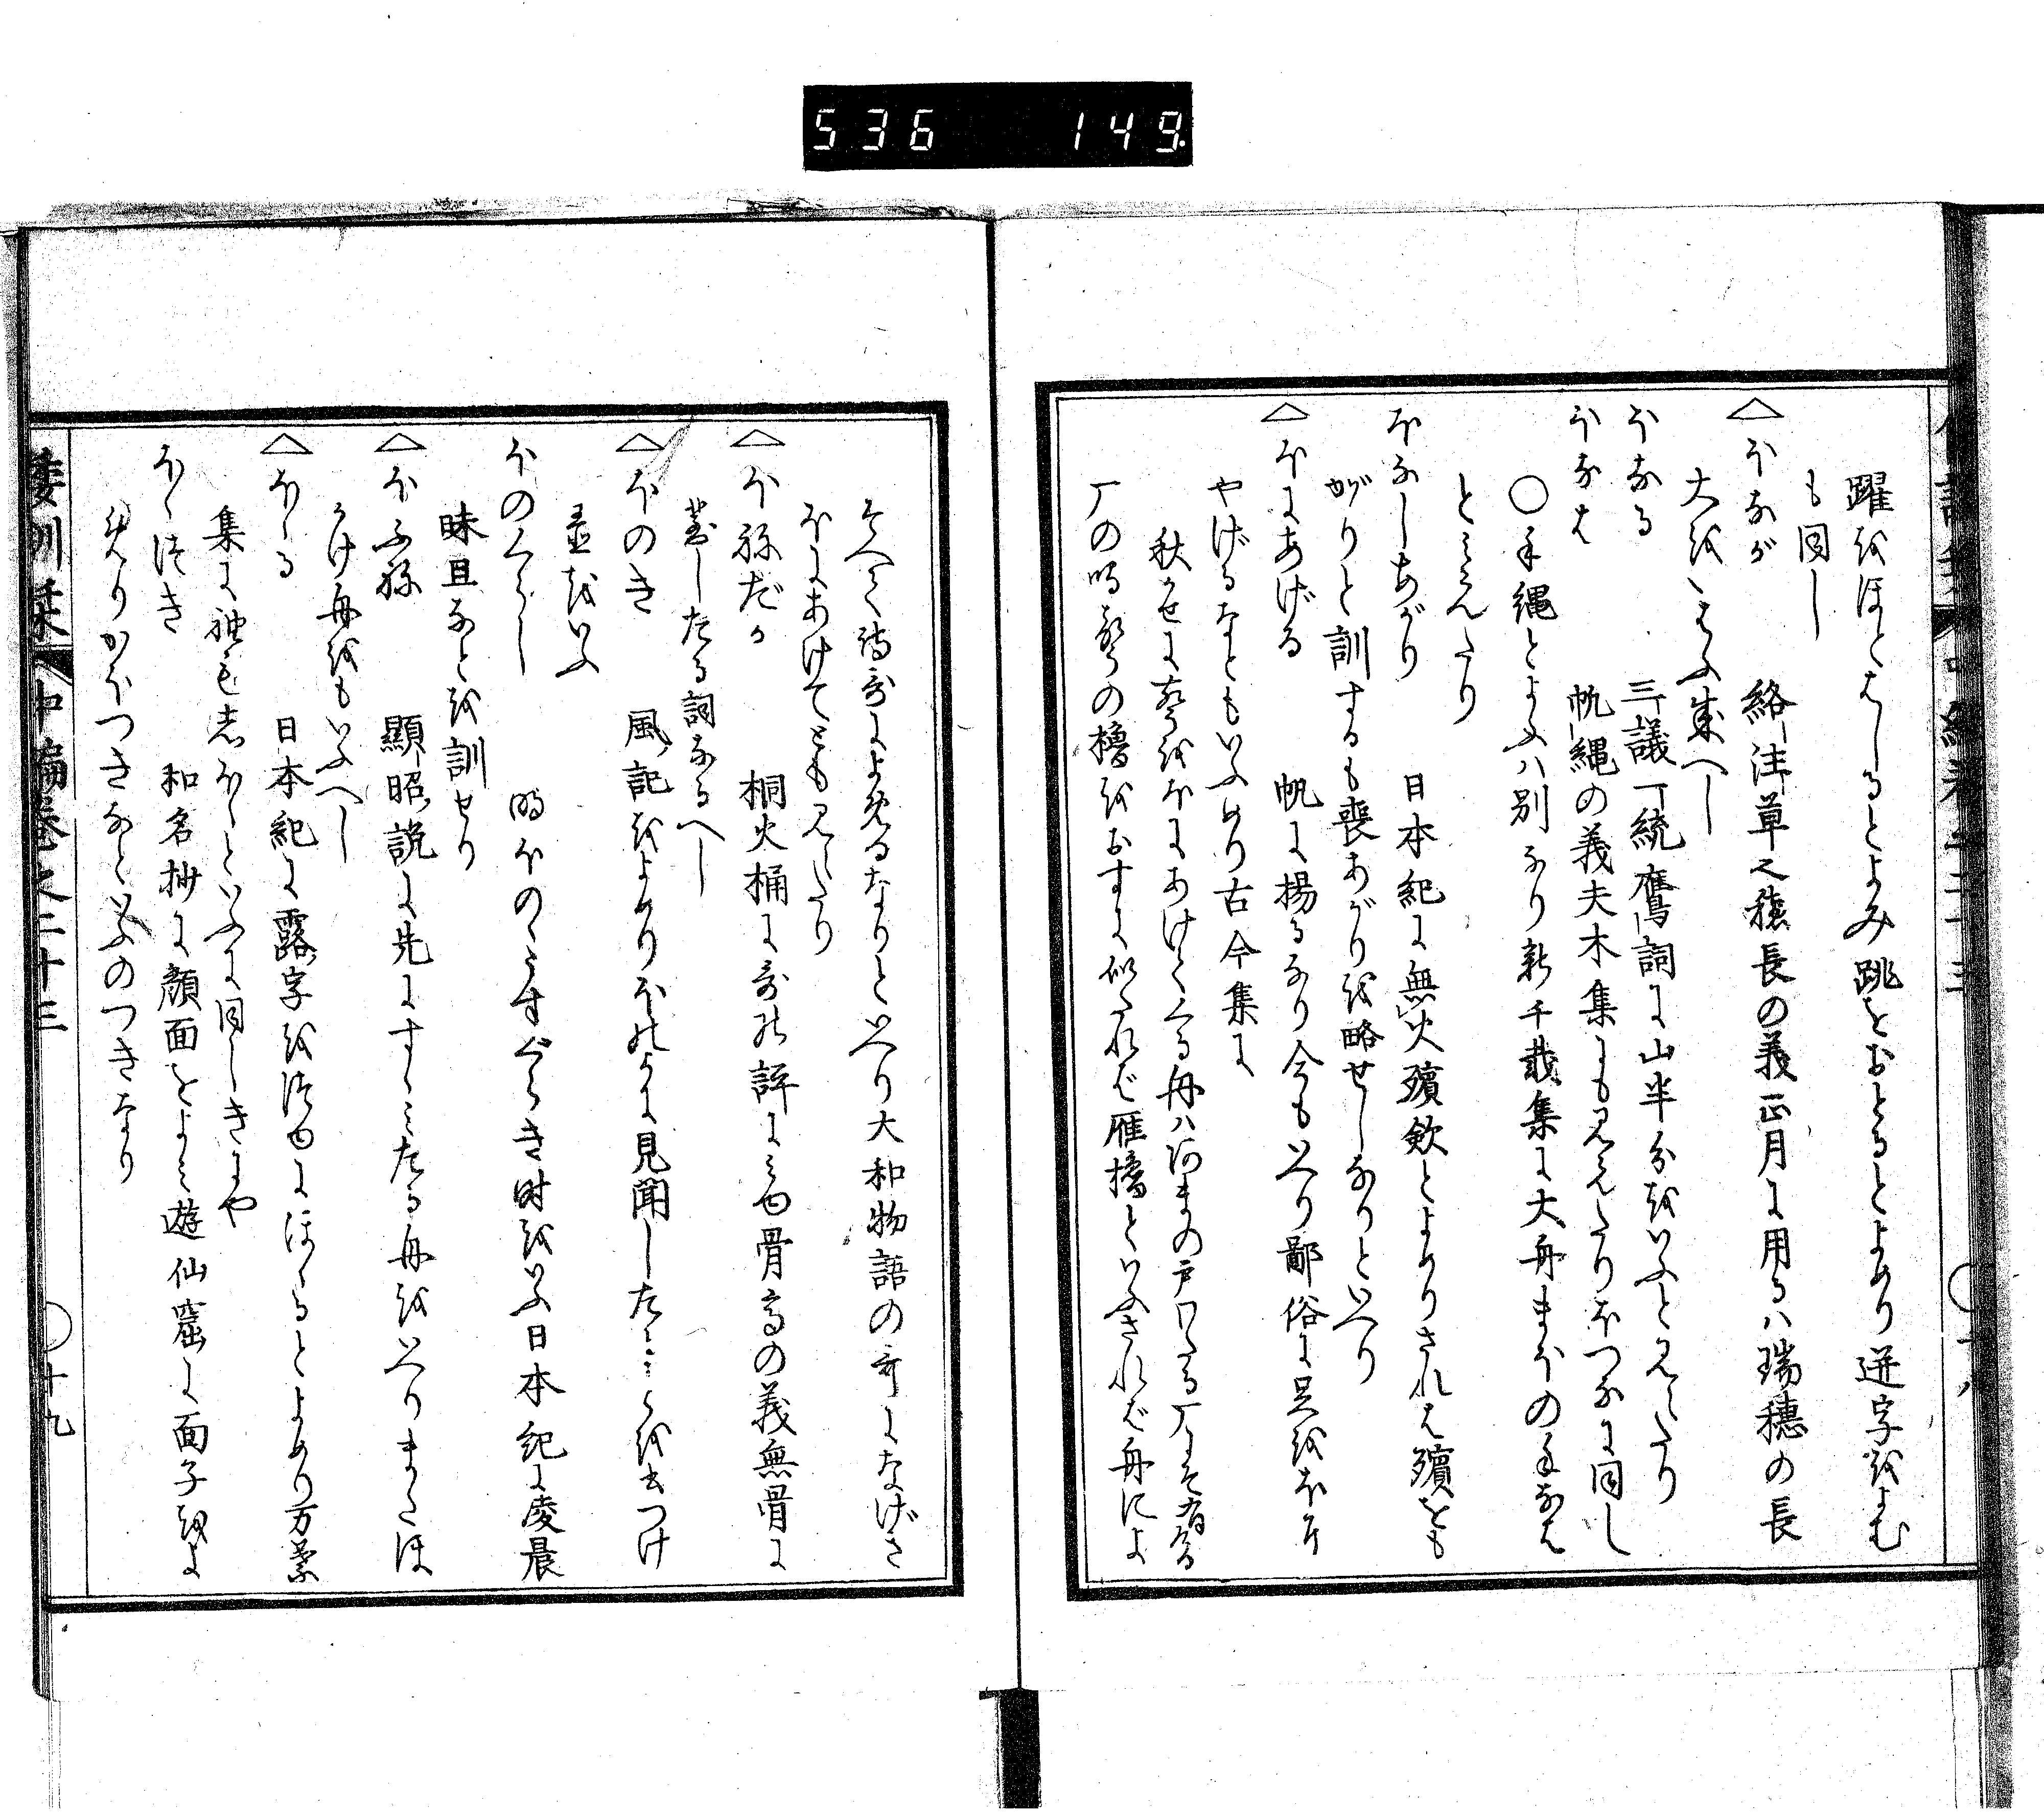 536 149
躍をほとはしるとよみ跳をおとるとよめり迸字をよむ
も同し
△ほなが 絡注草之穂長の義正月に用るハ瑞穂の長
大をいはふ成へし
ほなる 三議一統鷹詞に山半分をいふと見えたり
ほなは 帆縄の義夫木集にも見えたりほつなに同し
○手縄とよふハ別なり新千載集に大舟まほの手なは
とみえたり
ほなしあがり 日本紀に無火殯歛とよめりされは殯をも
がりと訓するも喪あがりを略せしなりといへり
△ほにあげる 帆に揚るなり今もいへり鄙俗に足をほに
やげるなともいふめり古今集に
秋かせに声をほにあけてくる舟ハ天の戸わたる厂にそ有ける
厂の鳴声の櫓をおすに似たれば雁櫓といふされば舟によ
そへて詩哥によめるなりといへり大和物語の哥になげき
ほにあけてとも見えたり
△ほねだか 桐火桶に哥の評にみゆ骨高の義無骨に
蒸したる詞なるへし
△ほのき 風記をよめりほのかに見聞したることを書つけ
置をいふ
ほのくらし 明ほのゝうすぐらき時をいふ日本紀に凌晨
昧旦なとを訓せり
△ほふね 顕昭説に先にすゝみたる舟をいへりまたほ
かけ舟をもいふへし
△ほゝる 日本紀に露字を法ゆにほゝるとよめり万葉
集に袖もしほゝといふに同しきにや
ほゝつき 和名抄に顔面をよみ遊仙窟に面子をよ
めりかほつきなといふのつきなり
倭訓栞 中編巻之二十三 ○十九